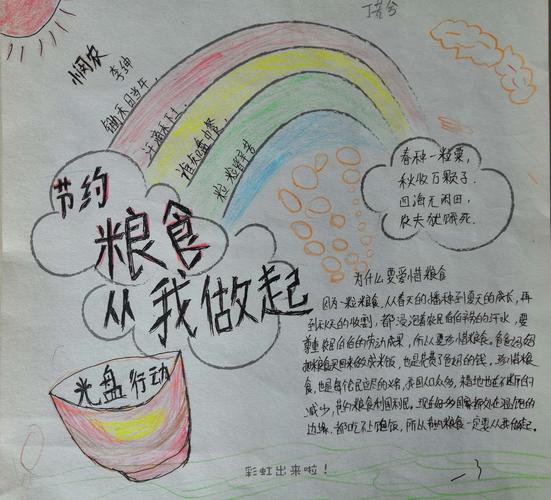 丁若兮
悯农
李绅
锄禾日当午,
汗滴禾下土,
谁知盘中餐,
粒粒皆辛苦
春种一粒粟,
秋收万颗子.
四海无闲田,
农夫犹饿死.
节约
粮食
从我做起
光盘行动
为什么要爱惜粮食
因为一粒粮食,从春天的播种到夏天的成长,再
到秋天的收割,都浸泡着农民伯伯辛勤的汗水,要
尊重农民伯伯的劳动成果,所以要珍惜粮食,爸爸妈妈
把粮食买回来做成米饭,也是花费了爸妈的钱,珍惜粮
食,也是每个民应尽的,我国人口众多,耕地也在不断的
减少,节约粮食利国利民,现在好多国家都处在
边缘,都吃不上饱饭,所以节约粮食一定要从我做起。
彩虹出来啦!